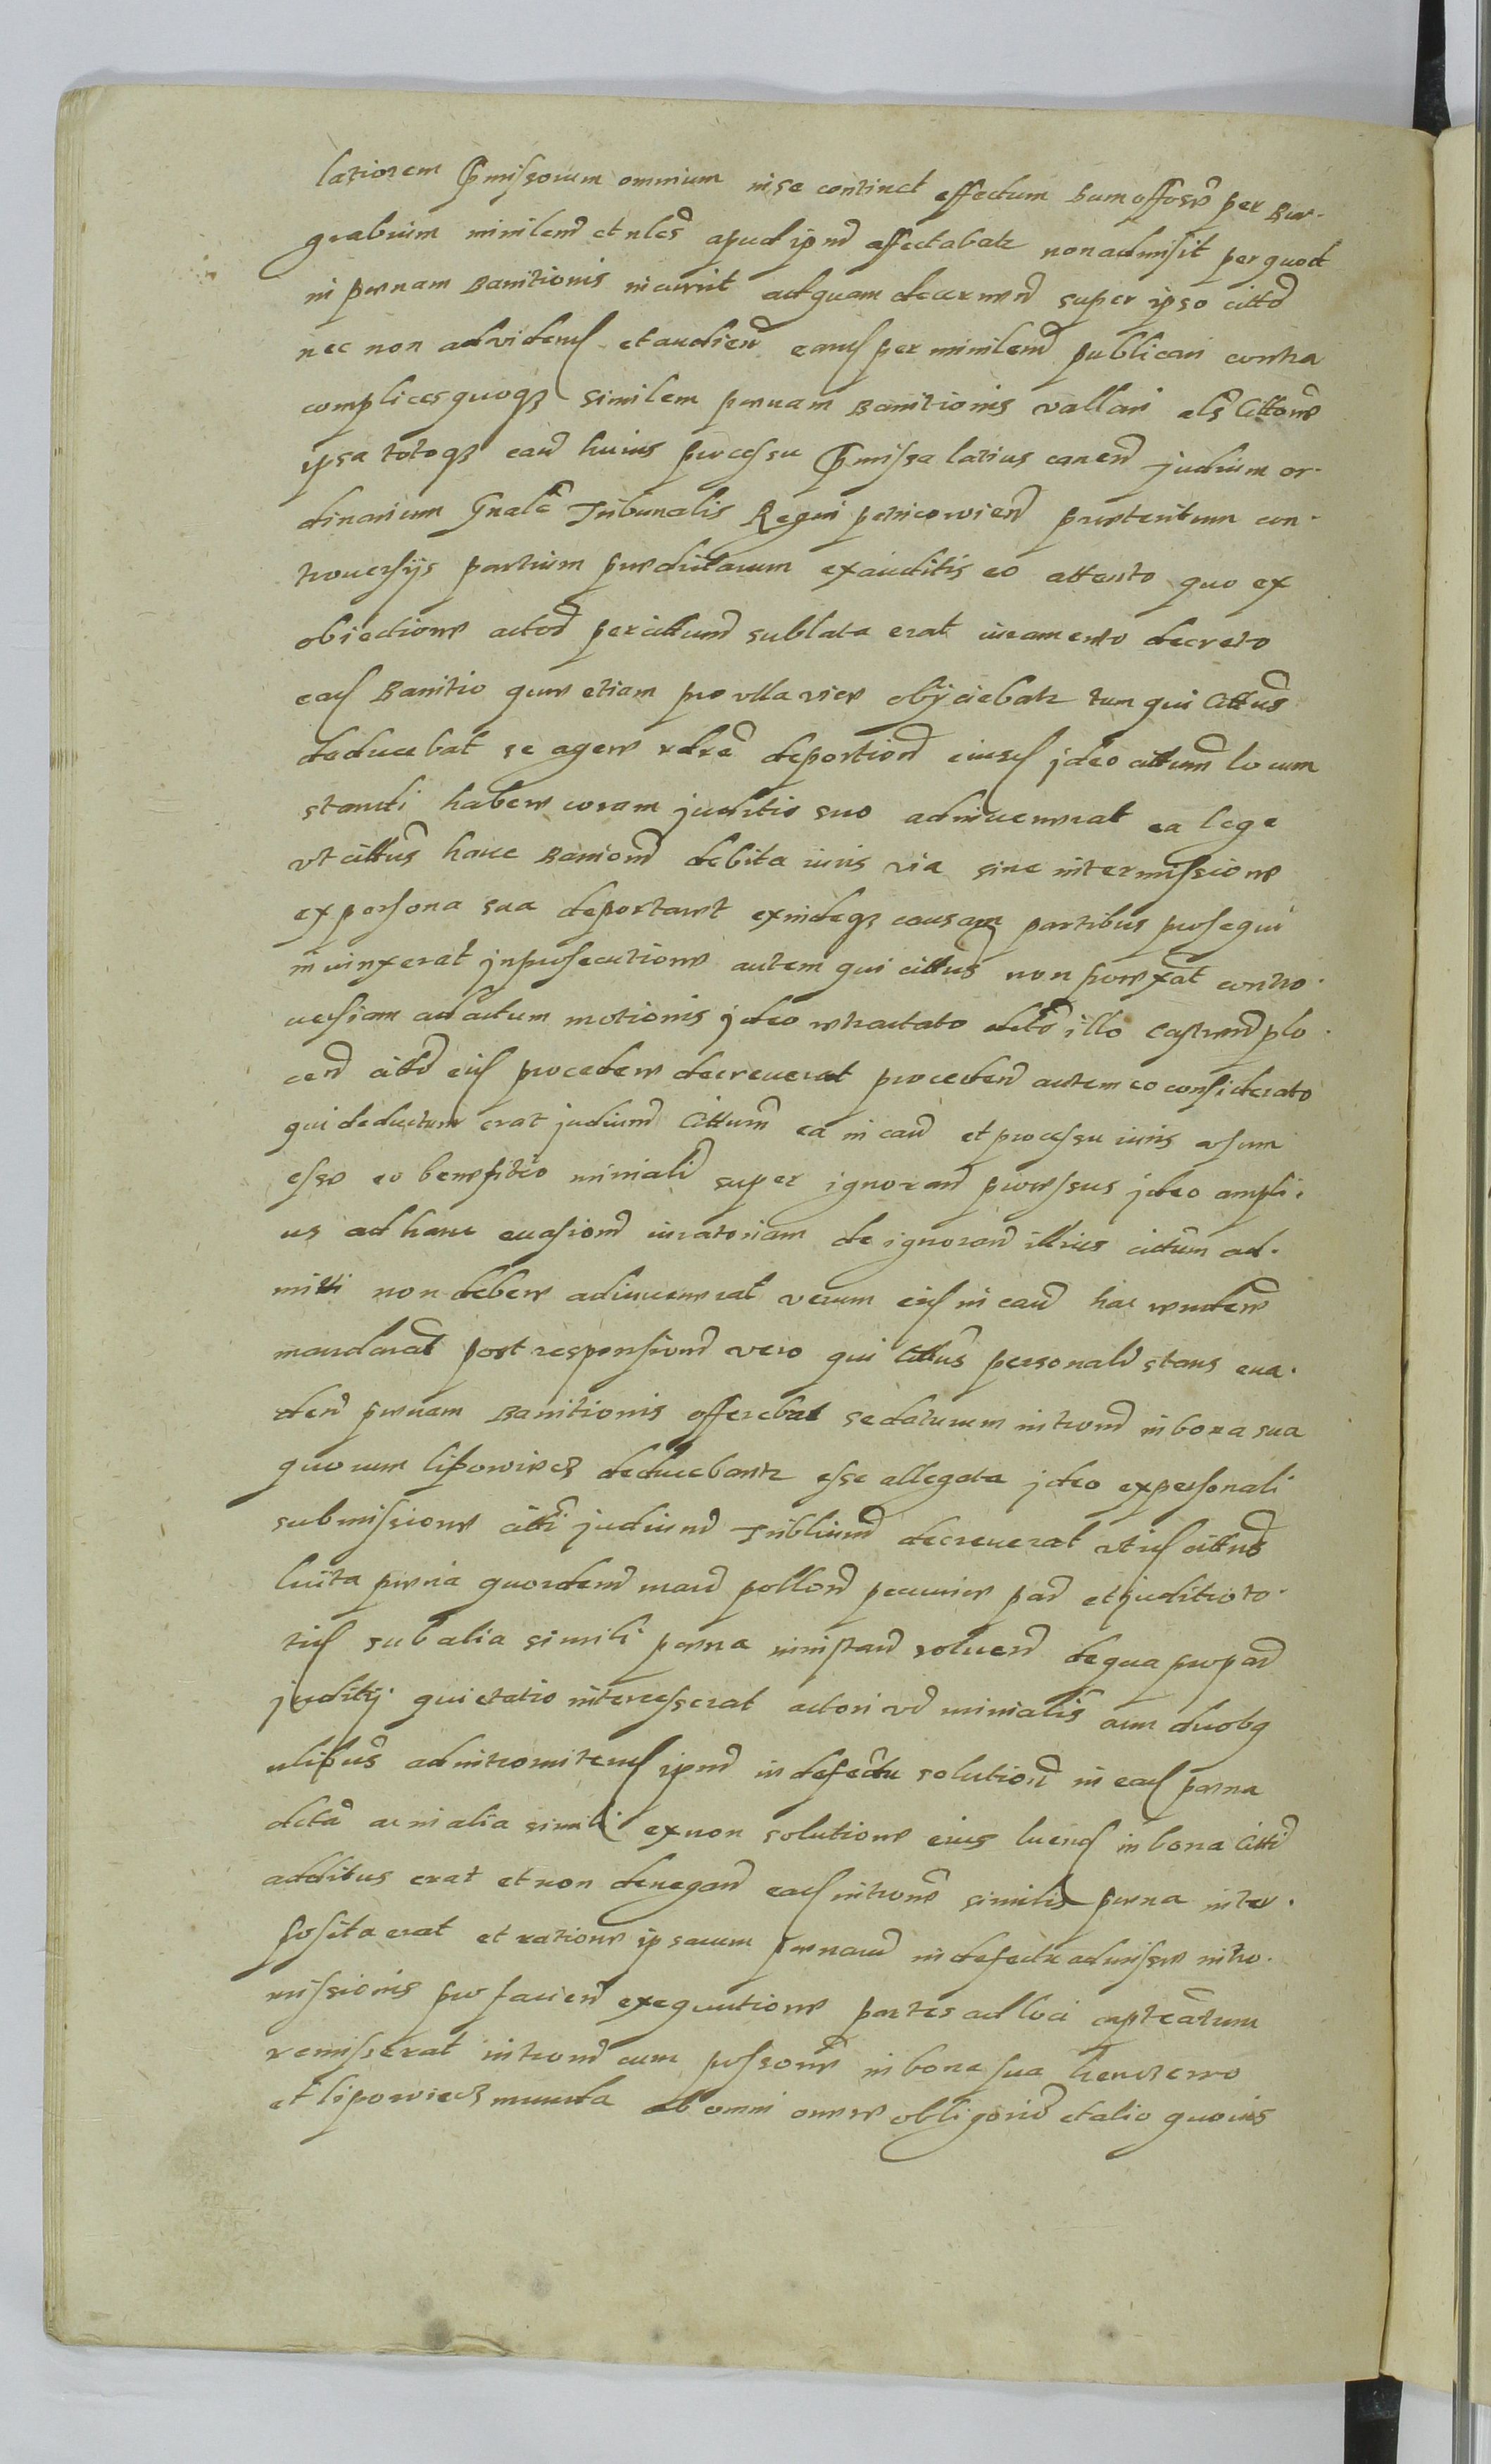 latiorem p̄missorum omnium in se continet effectum eum offōe per Bur-
grabium minilem̄ et nles̄ apud ipm̄ affectabatr non admisit per quod
in pœnam Banitionis incurrit ad quam decernen̄ super ipso cittō
nec non ad videnḍ et audien̄ eanḍ per minilem̄ publicari contra
complices quoqȝ similem pœnam Banitionis vallari als̄ Citt̄one
ipsa totoqȝ caus̄ huius processu p̄missa latius canen̄ judium or-
dinarium Gnalē Tribunalis Regni petricovien̄ præteritum con-
trouersijs partium prædictarum exauditis eo attento quo ex
obiectione actoris̄ per cittum̄ sublata erat iuramento decreto
eaḍ Banitio quæ etiam pro vlla vice obijciebatr tum qui Cittus̄
deducebat se agere rdrē deportion̄ eiusḍ jdeo cittum̄ locum
standi habere coram juditio suo adinuenerat ea lege
vt cittus̄ hanc Baniom̄ debita iuris via sine intermissione
ex persona sua deportaret exindeqȝ causam partibus prosequi
iniunxerat jn prosecutione autem qui cittus̄ non porrexāt contro-
uersiam ad actum motionis jdeo retractato dctō illo Castren̄ plo-
cen̄ cittō eiḍ procedere decreuerat proceden̄ autem eo considerato
qui deductum erat judium̄ Cittum̄ ea in caus̄ et processu iuris vsum
esse eo benefitio minialī super ignoran̄ processus jdeo ampli-
us ad hanc euasiom̄ iuratoriam de ignoran̄ illius cictūm ad-
mitti non debere adinuenerat verum eiḍ in caus̄ hac respondere
mandarat post responsiom̄ vero qui Cittus̄ personalr̄ stans eua-
den̄ pœnam Banitionis offerebat se daturum introm̄ in bona sua
quorum lipowiecȝ deducebantr esse allegata jdeo ex personali
submissione cittī judium̄ Tribłium̄ decreuerat vt iḍ cittus̄
luita pœna quordecim̄ marc̄ pollon̄ pecuniæ par̄ et juditio to-
tiḍ sub alia simili pœna ininstan̄ soluen̄ de qua pro par̄
juditij quietatio intercesserat actori vō minialis̄ cum duobȝ
nlibus̄ ad intromittenḍ ipm̄ in defectu solution̄ in eaḍ pœna
dcta ac in alia simili ex non solutione eius luenḍ in bona Cittī
additus erat et non denegan̄ eaḍ introm̄e similis pœna inter-
posita erat et ratione ipsarum pœnarum̄ in defectu admissæ intro-
missionis pro facien̄ exequutione partes ad loci capteātum
remisserat introm̄ cum possonē in bona sua
et lipowiecȝ munda ab omni onere obligōnis̄ et alio quouis